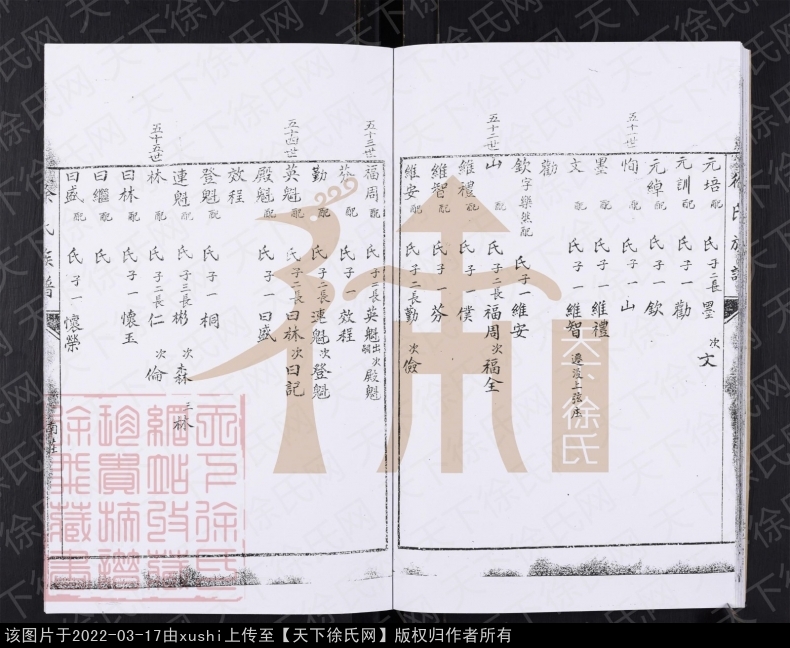 徐氏族譜
元培 配 氏 子二長墨 次文
元訓 配 氏 子一勸
五十一世
元綽 配 氏 子一欽
恂 配 氏 子一山
墨 配 氏 子一維禮
文 配 氏 子一維智 遷後上弦庄
勸
欽 字樂然配 氏 子一維安
五十二世
山 配 氏 子二長福周 次福全
維禮 配 氏 子一僕
維智 配 氏 子一芬
維安 配 氏 子二長勤 次儉
五十三世
福周 配 氏 子二長英魁 出嗣 次殿魁
芬 配 氏 子一效程
勤 配 氏 子二長連魁 次登魁
五十四世
英魁 配 氏 子二長曰林 次曰記
殿魁 配 氏 子一曰盛
效程
登魁 配 氏 子一桐
連魁 配 氏 子三長彬 次森 三林
五十五世
林 配 氏 子二長仁 次倫
曰林 配 氏 子一懷玉
曰繼 配 氏
曰盛 配 氏 子一懷榮
徐氏族譜
南庄
天下徐氏
天下徐氏网
该图片于2022-03-17由xushi上传至【天下徐氏网】版权归作者所有